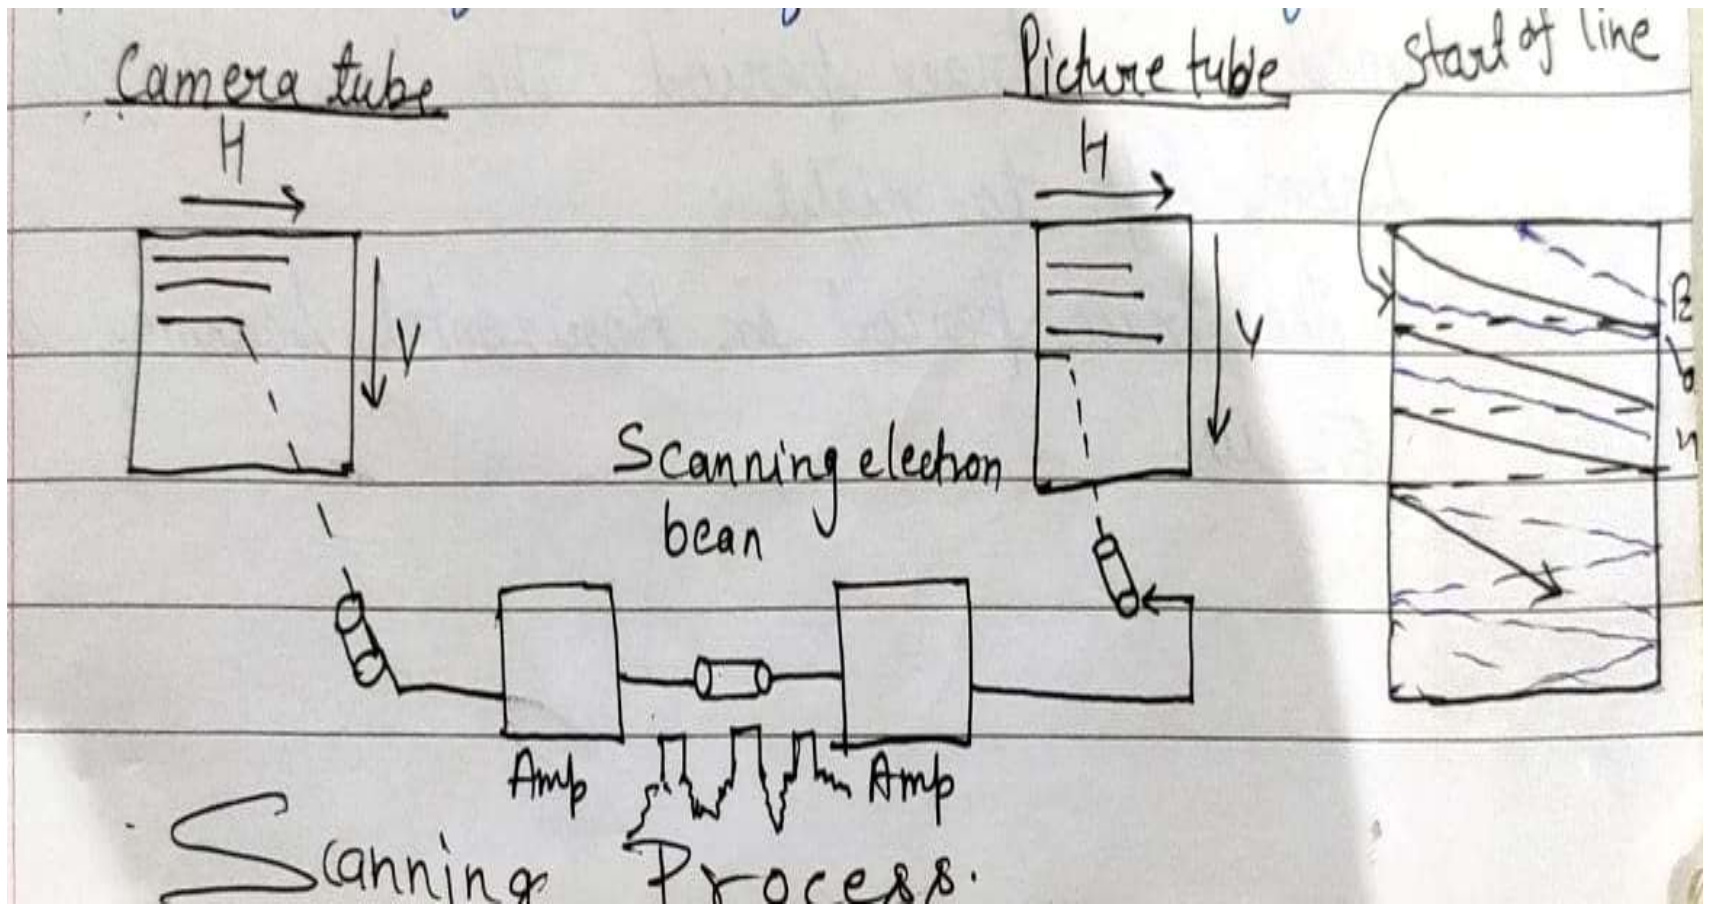 Camera tube
Picture tube
Start of line
H
H
V
V
Scanning electron
bean
Amp
Amp
Scanning Process.